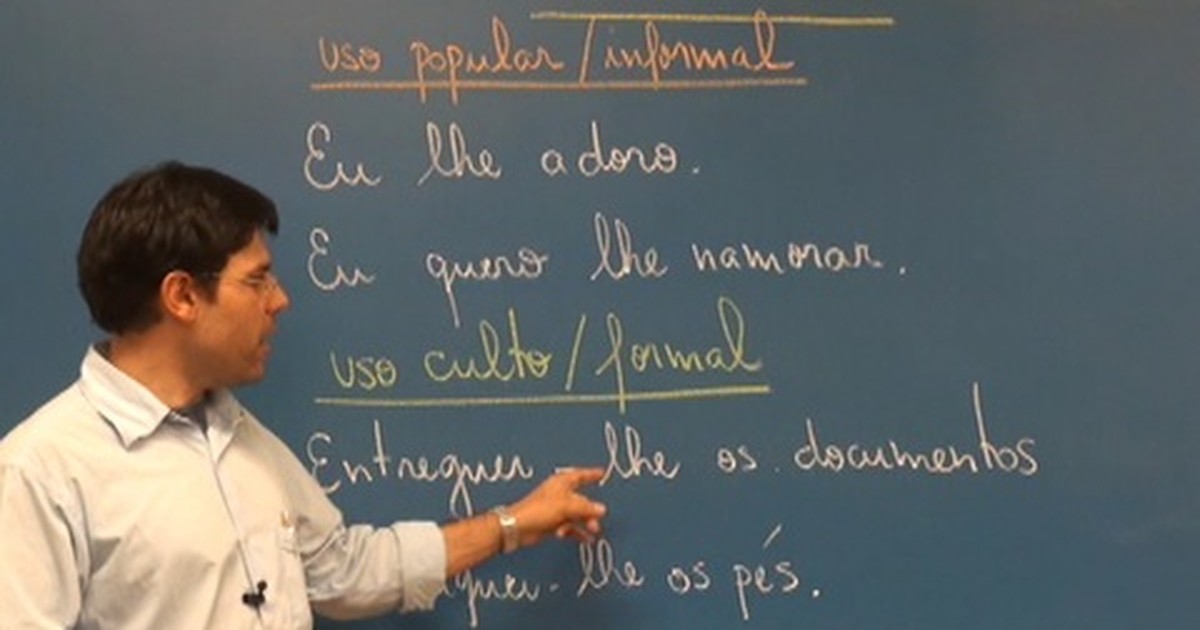 uso popular / informal
Eu lhe adoro.
Eu quero lhe namorar.
uso culto / formal
Entreguei-lhe os documentos
lhe os pés.